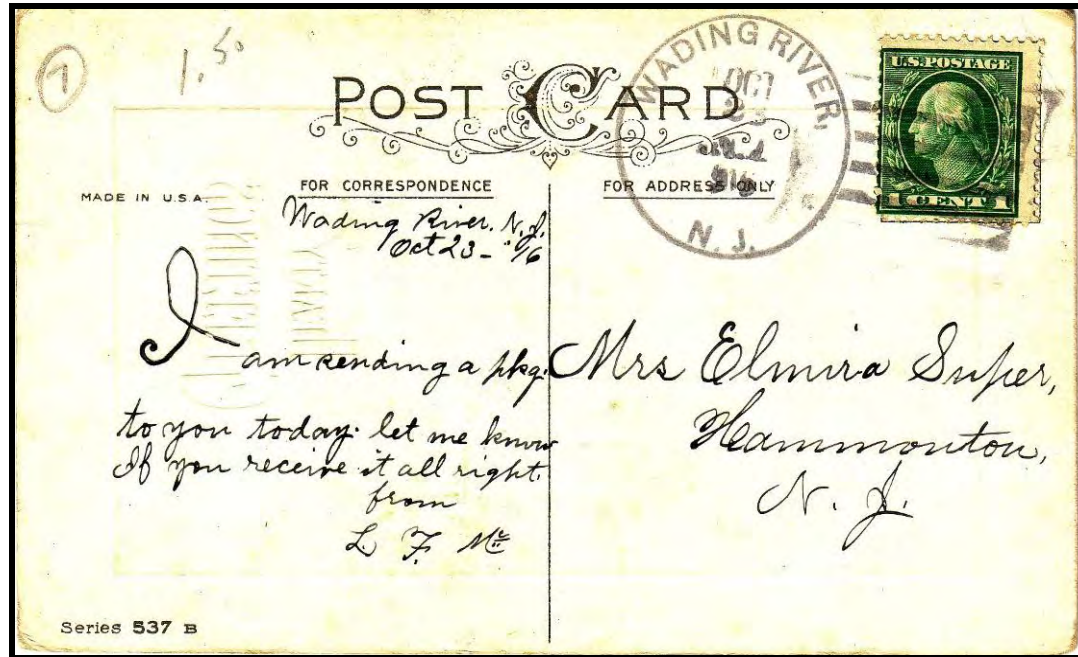 7
1.50
POST CARD
WADING RIVER,
OCT
23
1916
N. J.
U.S. POSTAGE
1 CENT 1
MADE IN U.S.A.
FOR CORRESPONDENCE
FOR ADDRESS ONLY
Wading River. N.J.
Oct 23 - '16
I am sending a pkg.
to you today. let me know
If you receive it all right.
from
L. F. Mc
Mrs Elmira Super,
Hammonton,
N. J.
Series 537 B